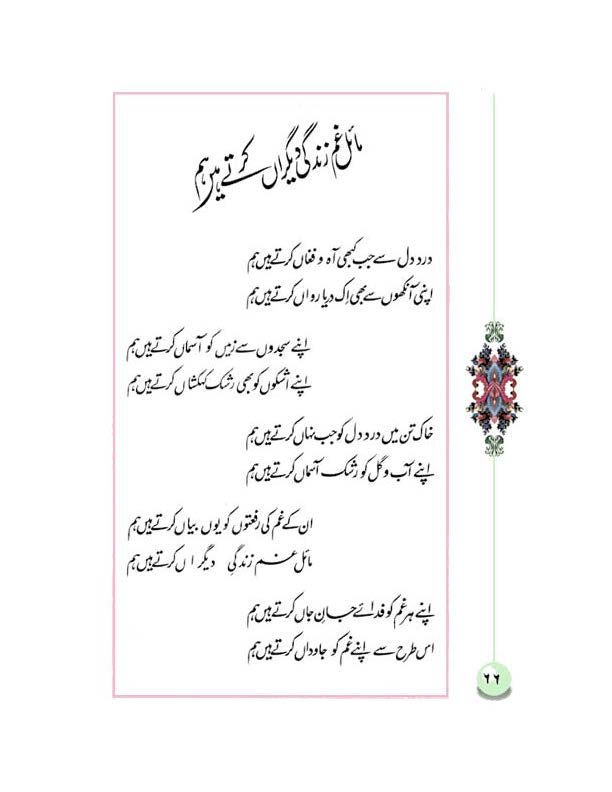 مائل غم زندگی دیگراں کرتے ہیں ہم
درد دل سے جب کبھی آہ و فغاں کرتے ہیں ہم
اپنی آنکھوں سے بھی اِک دریا رواں کرتے ہیں ہم
اپنے سجدوں سے زمیں کو آسماں کرتے ہیں ہم
اپنے اشکوں کو بھی رشک کہکشاں کرتے ہیں ہم
خاک تن میں درد دل کو جب نہاں کرتے ہیں ہم
اپنے آب و گل کو رشک آسماں کرتے ہیں ہم
ان کے غم کی رفعتوں کو یوں بیاں کرتے ہیں ہم
مائل غم زندگیِ دیگراں کرتے ہیں ہم
اپنے ہر غم کو فدائے جانِ جاں کرتے ہیں ہم
اس طرح سے اپنے غم کو جاوداں کرتے ہیں ہم
۶۶